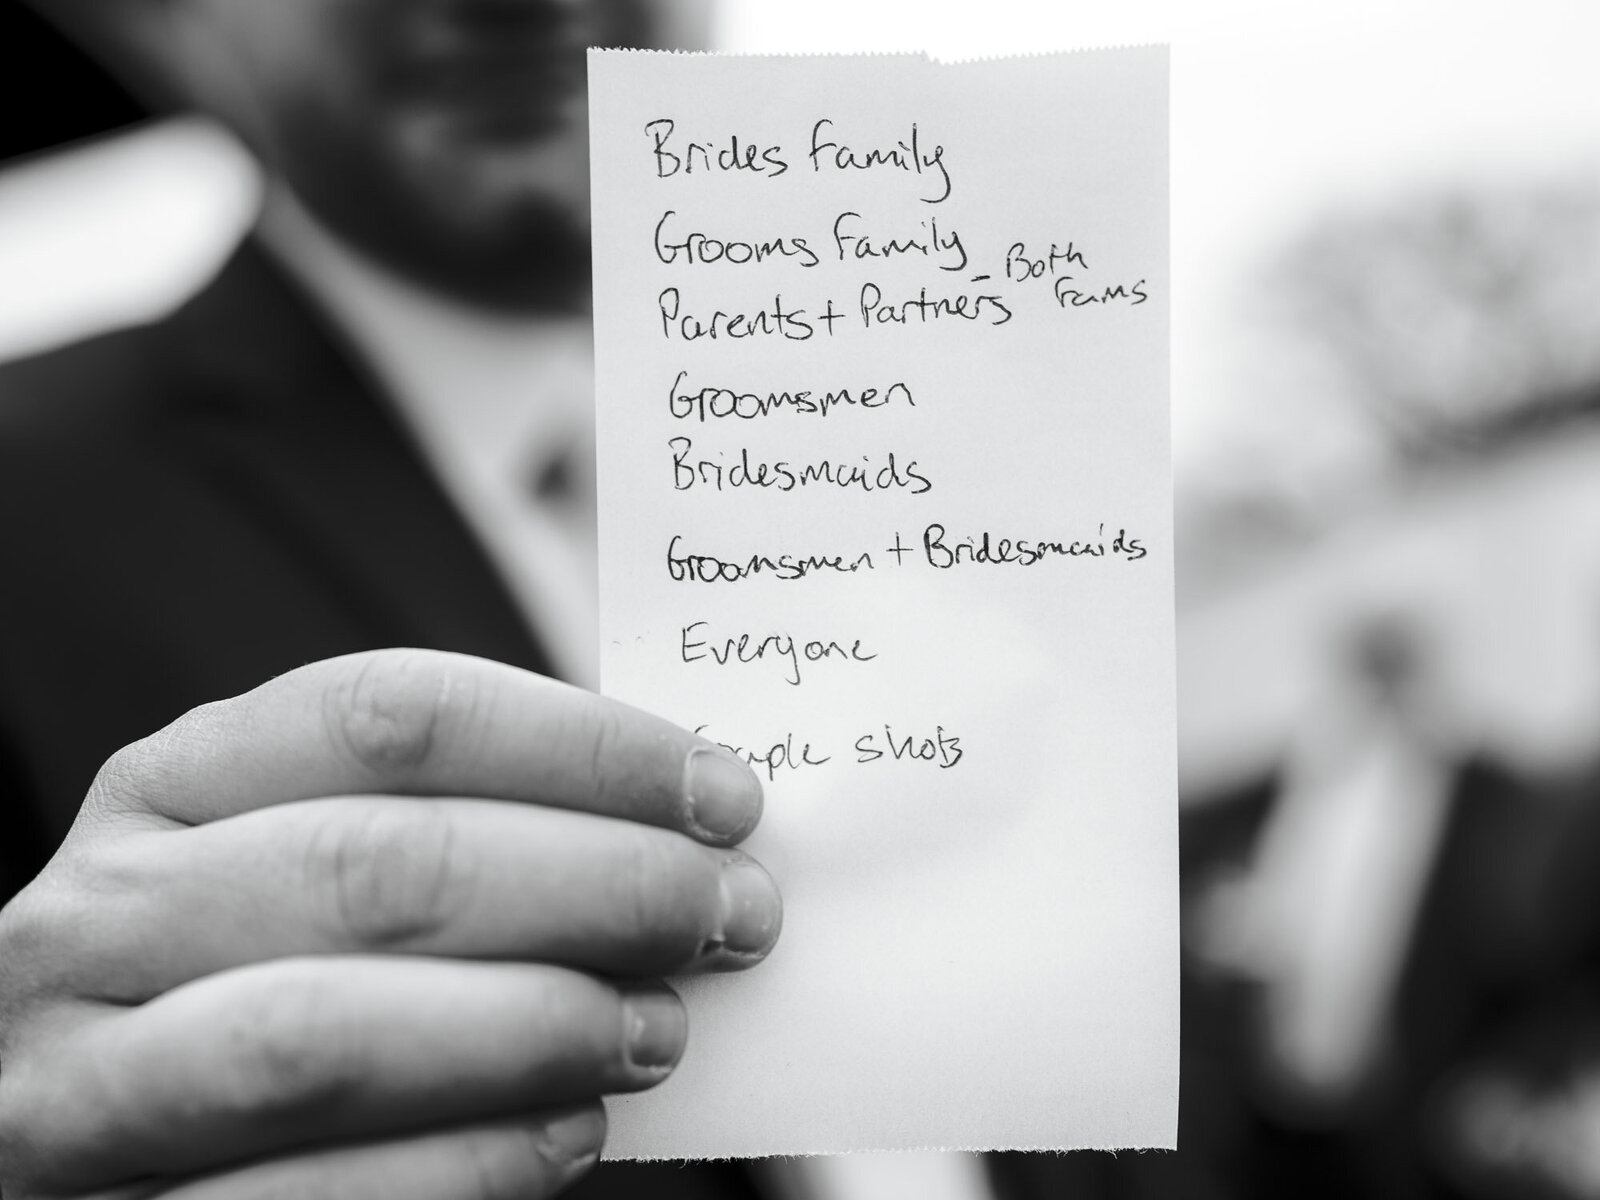 Brides Family
Grooms Family
Parents + Partners - Both Fams
Groomsmen
Bridesmaids
Groomsmen + Bridesmaids
Everyone
Couple shots